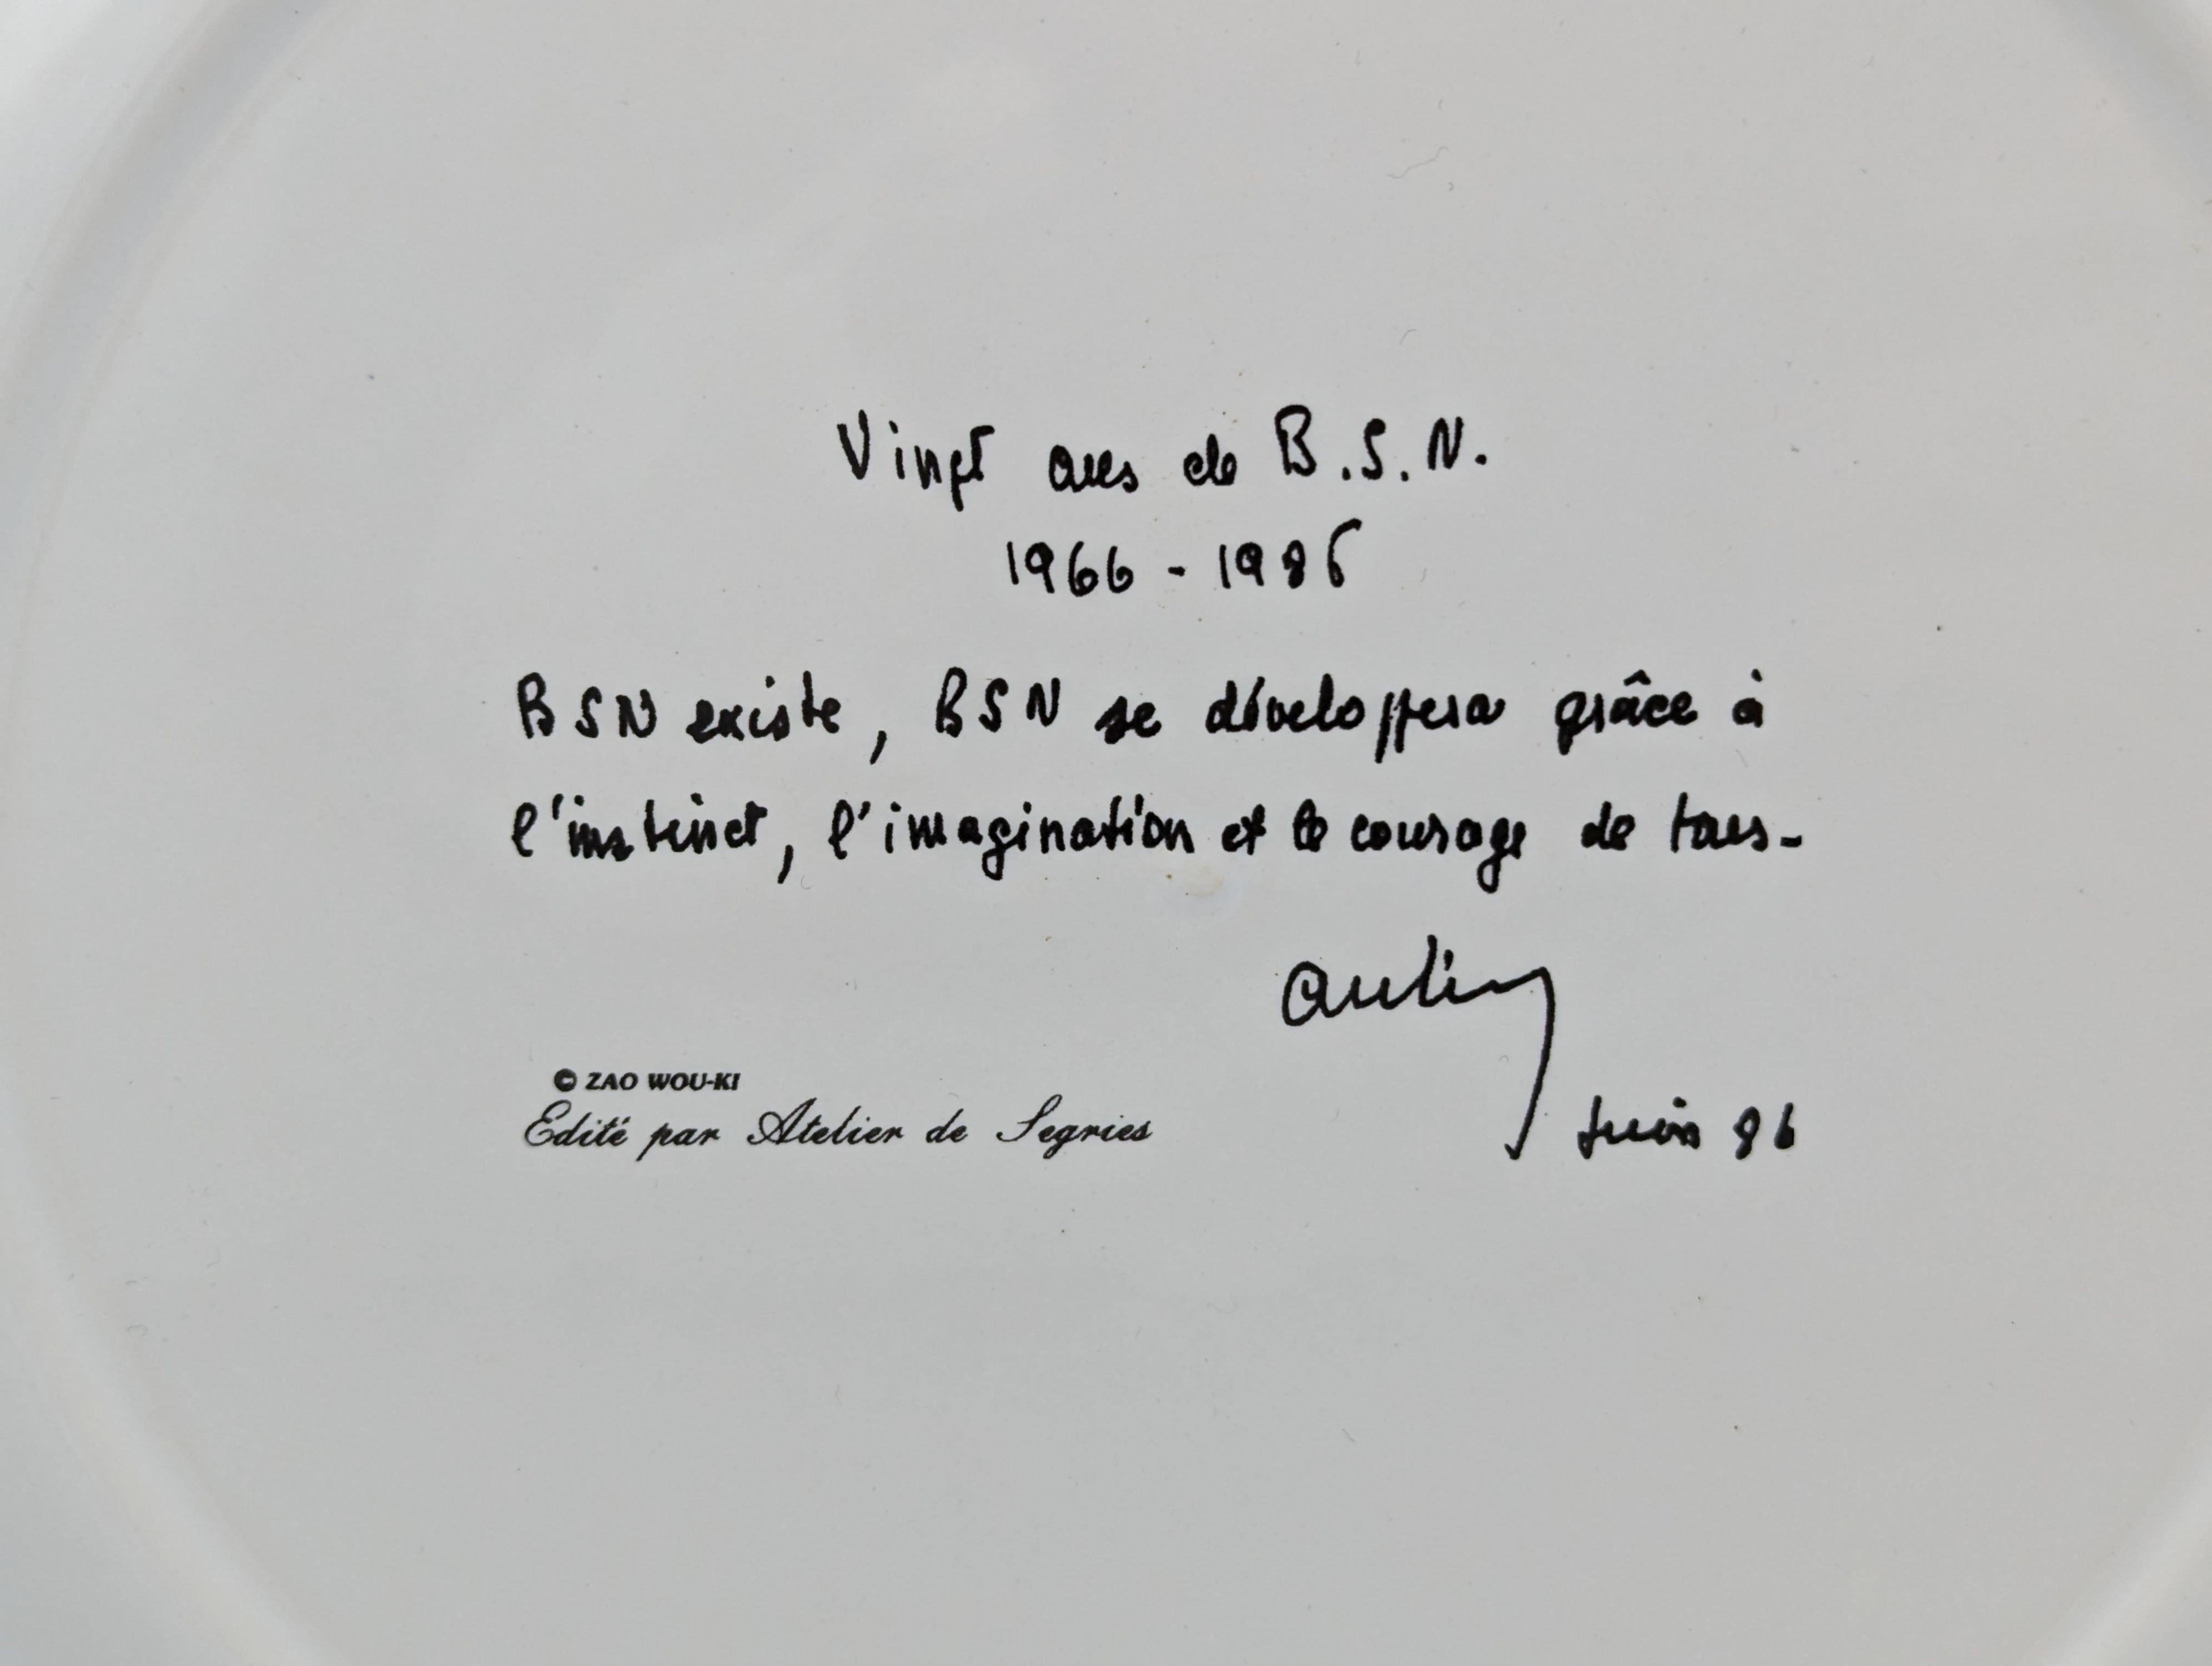 Vingt ans de B.S.N.
1966 - 1986
BSN existe, BSN se développera grâce à
l'instinct, l'imagination et le courage de tous-
© ZAO WOU-KI
Edité par Atelier de Segries
Juin 86